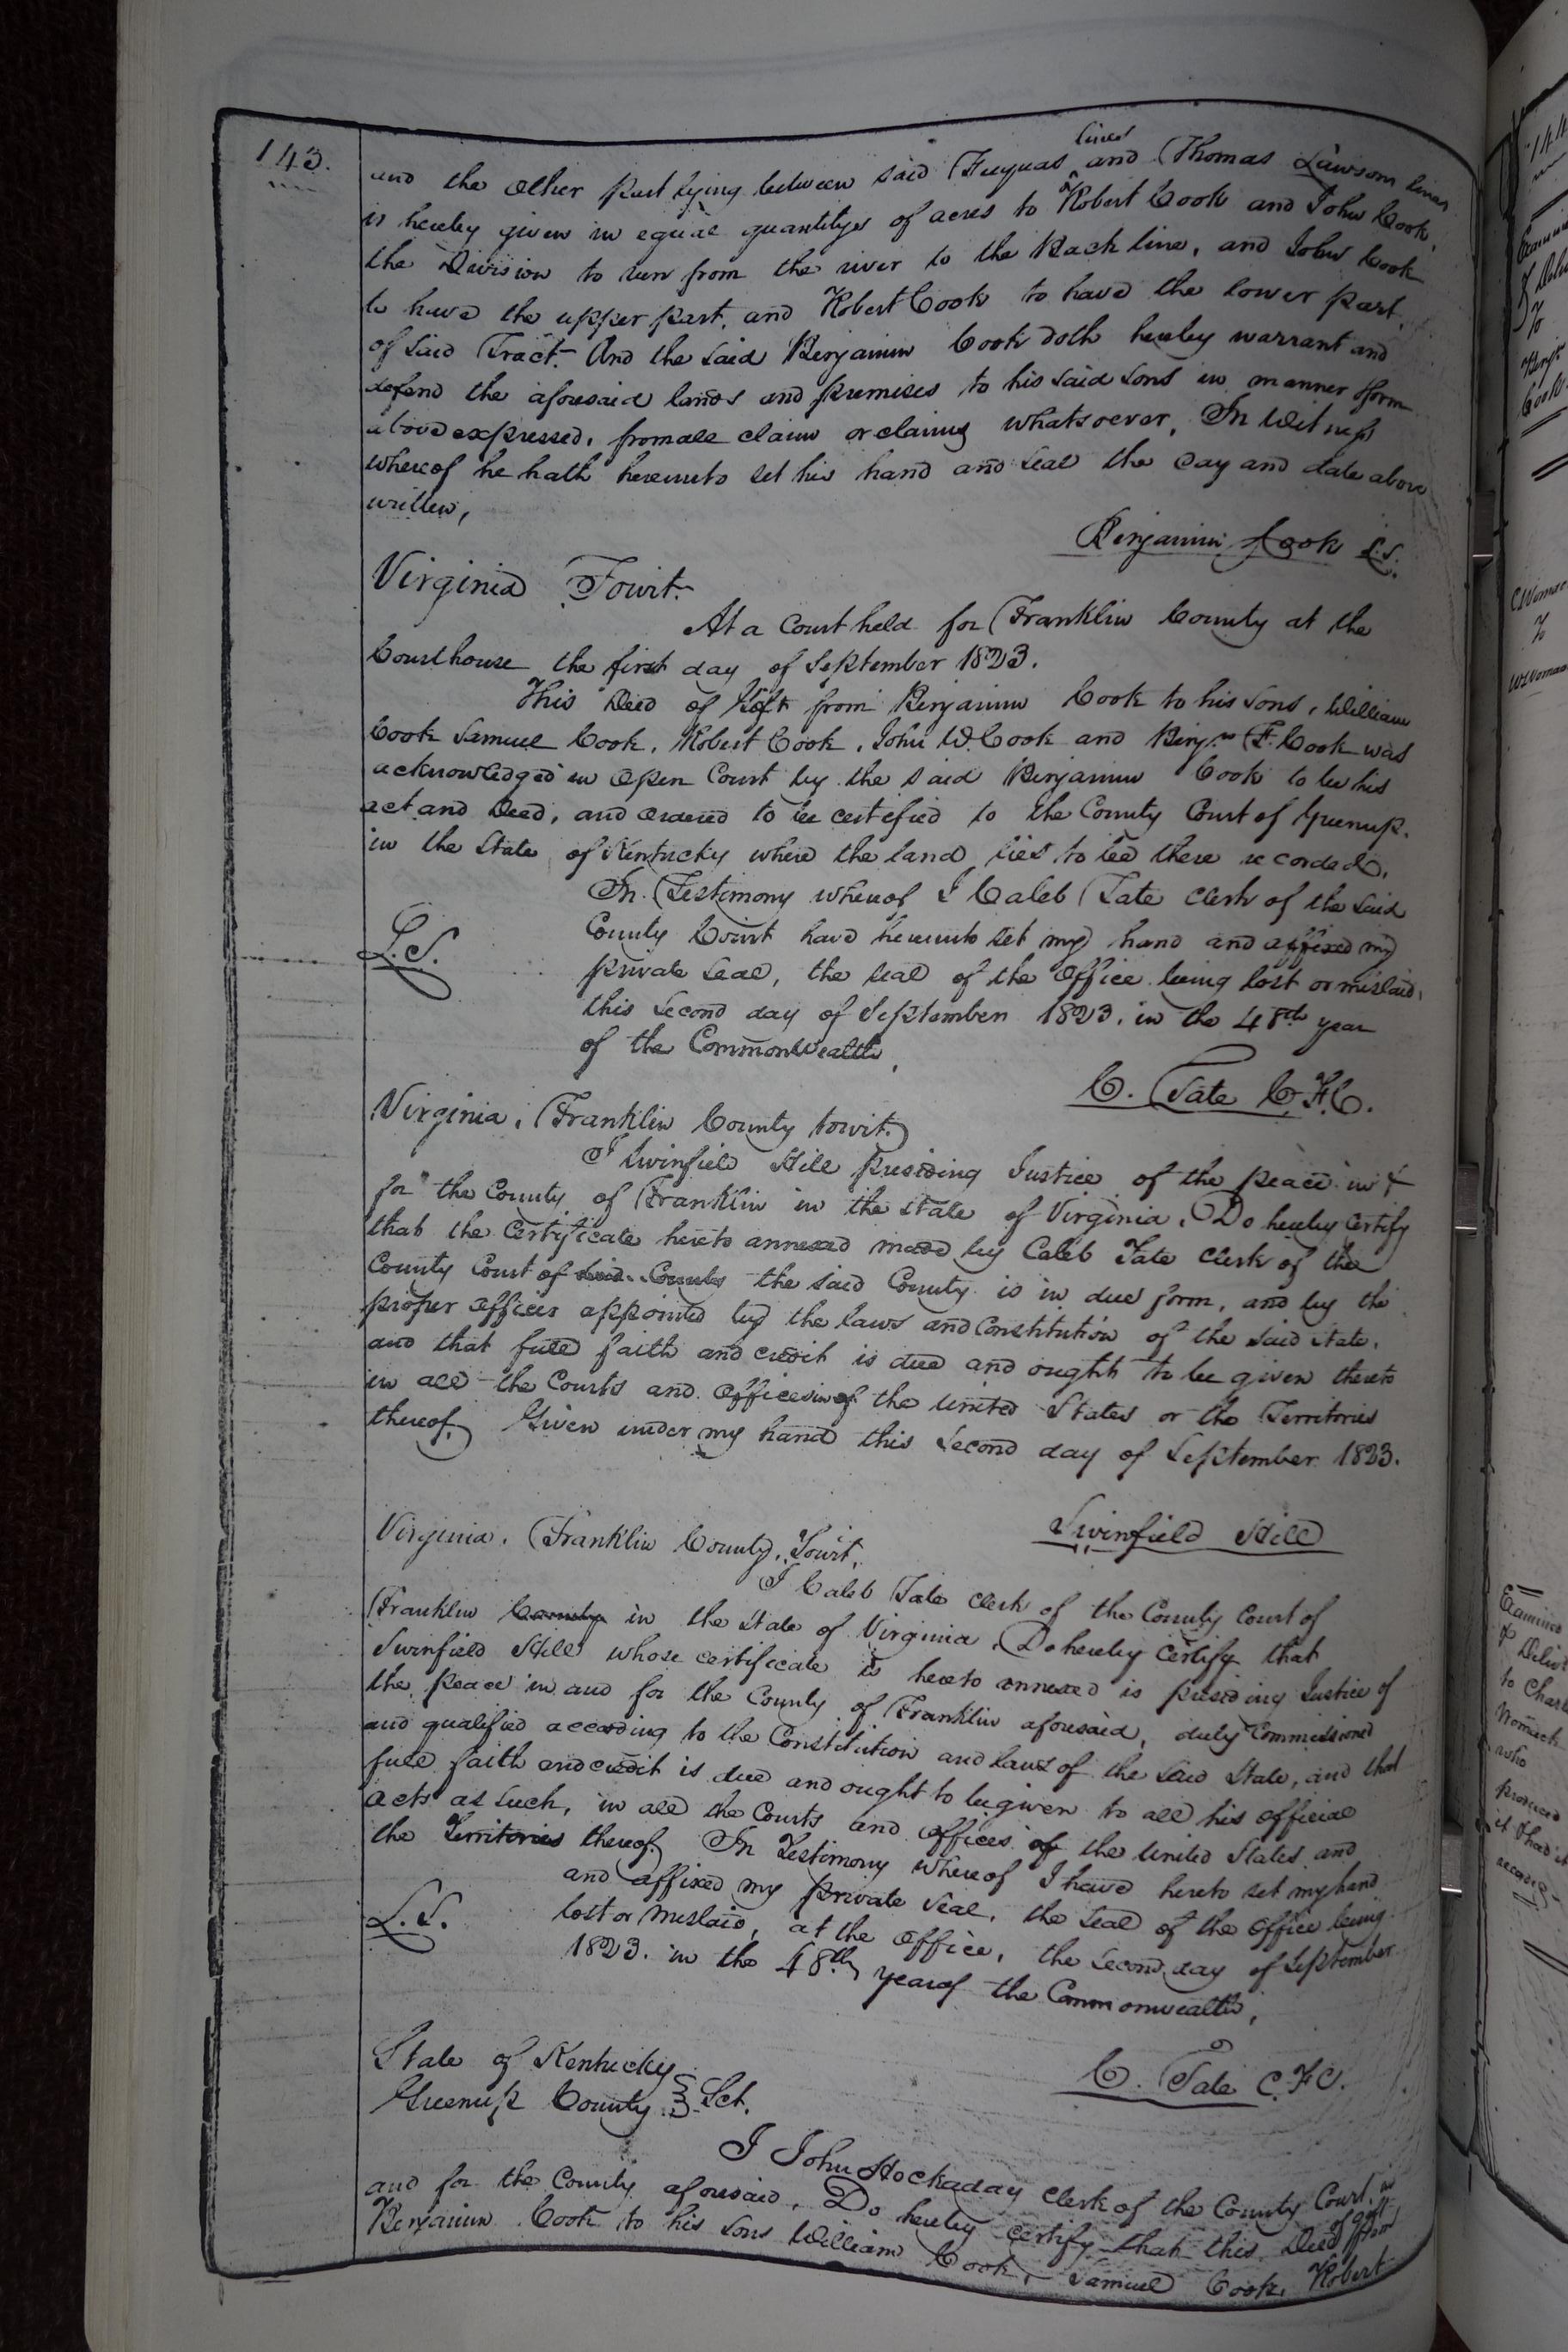 143.
and the other part lying between said Fuquas lines and Thomas Lawsons lines
is hereby given in equal quantitys of acres to Robert Cook and John Cook,
the Division to run from the river to the Back line, and John Cook
to have the upper part, and Robert Cook to have the lower part,
of said Tract. And the said Benjamin Cook doth hereby warrant and
defend the aforesaid lands and premises to his said sons in manner & form
above expressed, from all claim or claims whatsoever, In Witness
whereof he hath hereunto set his hand and seal the day and date above
written,
Benjamin Cook L.S.
Virginia Towit.
At a Court held for Franklin County at the
Courthouse the first day of September 1823.
This Deed of Gift from Benjamin Cook to his sons, William
Cook Samuel Cook, Robert Cook, John W. Cook and Benjn. F. Cook was
acknowledged in open Court by the said Benjamin Cook to be his
act and Deed, and ordered to be certified to the County Court of Greenup.
in the State of Kentucky where the land lies to be there recorded.
In Testimony whereof I Caleb Tate Clerk of the said
County Court have hereunto set my hand and affixed my
L.S.
private seal, the seal of the office being lost or mislaid,
this second day of September 1823. in the 48th year
of the Commonwealth,
C. Tate C.F.C.
Virginia, Franklin County towit.
I Swinfield Hill presiding Justice of the peace in &
for the County of Franklin in the state of Virginia, Do hereby Certify
that the Certificate hereto annexed made by Caleb Tate Clerk of the
County Court of said County the said County is in due form, and by the
proper officer appointed by the laws and Constitution of the said state,
and that full faith and credit is due and ought to be given thereto
in all the Courts and offices in of the United States or the Territories
thereof, Given under my hand this second day of September 1823.
Swinfield Hill
Virginia, Franklin County, Towit,
I Caleb Tate Clerk of the County Court of
Franklin County in the State of Virginia, Do hereby Certify that
Swinfield Hill whose certificate is hereto annexed is presiding Justice of
the peace in and for the County of Franklin aforesaid, duly Commissioned
and qualified according to the Constitution and laws of the said State, and that
full faith and credit is due and ought to be given to all his official
acts as such, in all the Courts and offices of the United States and
the Territories thereof. In Testimony whereof I have hereto set my hand
and affixed my private seal, the seal of the office being
L.S.
lost or mislaid, at the office, the second day of September
1823. in the 48th year of the Commonwealth,
C. Tate C.F.C.
State of Kentucky
Greenup County } Sct.
I John Hockaday Clerk of the County Court in
and for the County aforesaid, Do hereby certify that this Deed of gift from
Benjamin Cook to his sons William Cook, Samuel Cook, Robert
144
To
Benjn
Cook
CWomac
To
WWomac
Examined
& Delivd
to Charl
Womack
who
produced
it
recorded